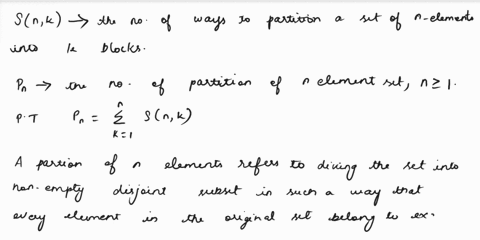 S(n,k) → the no. of ways to partition a set of n-elements
into k blocks.
Pn → the no. of partition of n element set, n ≥ 1.
P.T Pn = n∑k=1 S(n,k)
A partion of n elements refers to diving the set into
non-empty disjoint subset in such a way that
every element in the original set belong to ex.